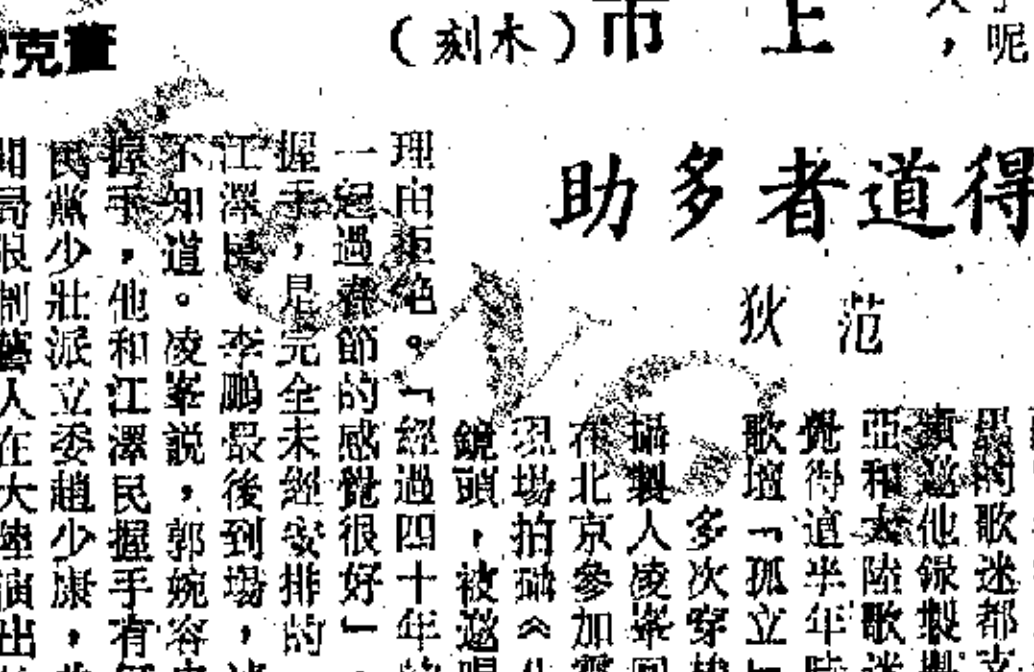 呢
，
市上
（刻木）
克董
得道者多助
范狄
愚的歌迷都
續邀他錄製
亞和大陸歌迷
覺得這半年
歌壇「孤立
多次穿梭
攝製人凌峯回
在北京參加
現場拍攝《
鏡頭，被邀唱
理由拒絕。「經過四十年
一起過春節的感覺很好」
握手，是完全未經安排的
江澤民、李鵬最後到場，
不知道。凌峯說，郭婉容
握手，他和江澤民握手有
民黨少壯派立委趙少康，
局限制藝人在大陸演出